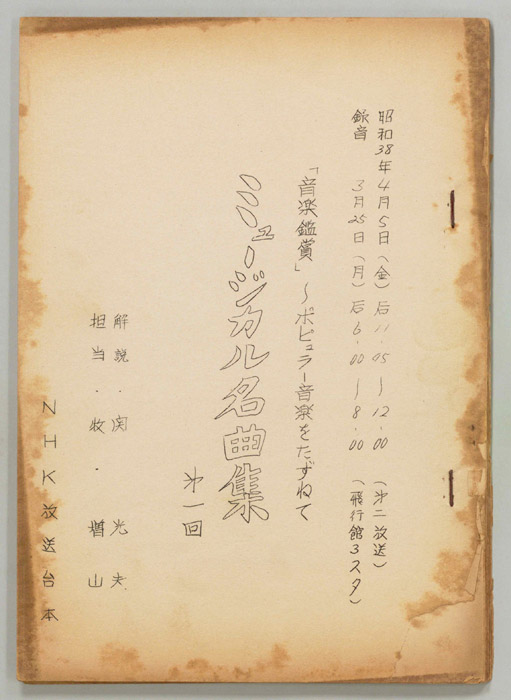 昭和38年4月5日(金)后11.05〜12.00(第二放送)
録音 3月25日(月)后6.00〜8.00(飛行館3スタ)
「音楽鑑賞」〜ポピュラー音楽をたずねて
ミュージカル名曲集
第一回
解説・関 光夫
担当・牧・増山
NHK放送台本